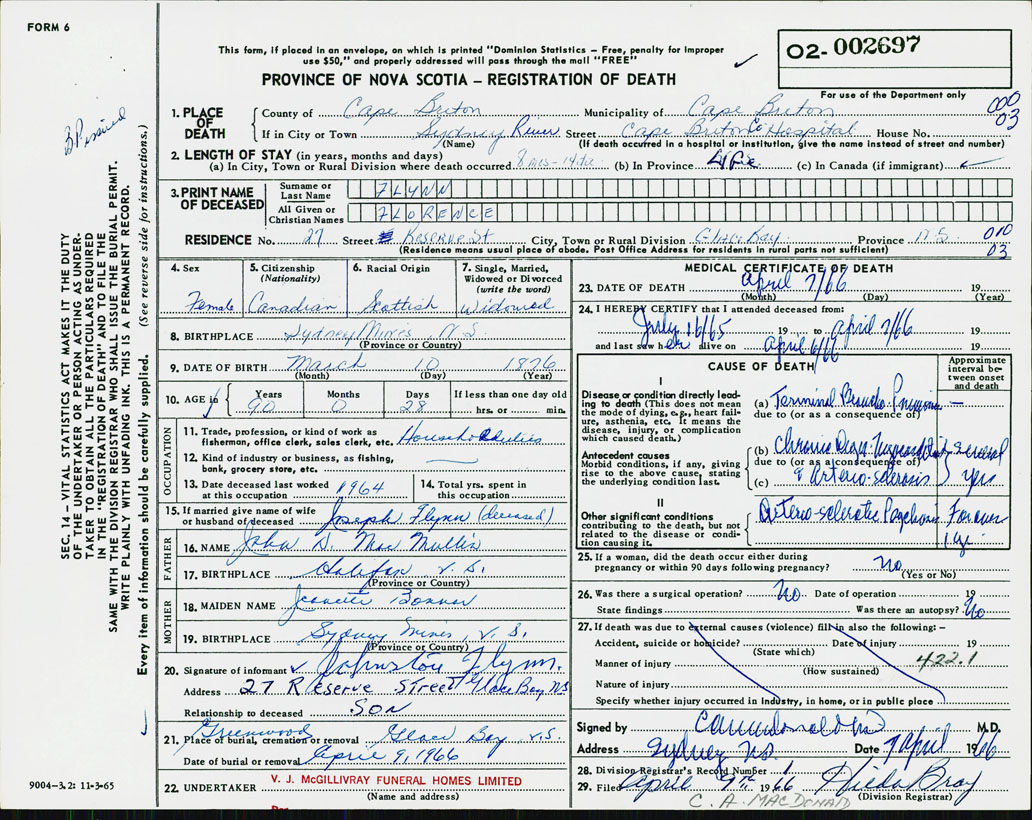 FORM 6
This form, if placed in an envelope, on which is printed "Dominion Statistics – Free, penalty for improper
use $50," and properly addressed will pass through the mail "FREE"
02-002697
PROVINCE OF NOVA SCOTIA – REGISTRATION OF DEATH
For use of the Department only
1. PLACE OF DEATH County of Cape Breton Municipality of Cape Breton 000
If in City or Town Sydney River Street Cape Breton Co Hospital House No. 03
(Name) (If death occurred in a hospital or institution, give the name instead of street and number)
2. LENGTH OF STAY (in years, months and days)
(a) In City, Town or Rural Division where death occurred 8 mos - (b) In Province Life (c) In Canada (if immigrant)
3. PRINT NAME OF DECEASED Surname or Last Name FLYNN
All Given or Christian Names FLORENCE
RESIDENCE No. 27 Street Reserve St City, Town or Rural Division Glace Bay Province N.S. 010
(Residence means usual place of abode. Post Office Address for residents in rural parts not sufficient) 03
4. Sex Female
5. Citizenship (Nationality) Canadian
6. Racial Origin Scottish
7. Single, Married, Widowed or Divorced (write the word) Widowed
8. BIRTHPLACE Sydney Mines N.S.
(Province or Country)
9. DATE OF BIRTH March 10 1876
(Month) (Day) (Year)
10. AGE in Years 90 Months 0 Days 28 If less than one day old
hrs. or min.
OCCUPATION
11. Trade, profession, or kind of work as
fisherman, office clerk, sales clerk, etc. Household duties
12. Kind of industry or business, as fishing,
bank, grocery store, etc.
13. Date deceased last worked
at this occupation 1964
14. Total yrs. spent in
this occupation
15. If married give name of wife
or husband of deceased Joseph Flynn (deceased)
FATHER
16. NAME John D. MacMullin
17. BIRTHPLACE Halifax N.S.
(Province or Country)
MOTHER
18. MAIDEN NAME Jeanette Bonnar
19. BIRTHPLACE Sydney Mines, N.S.
(Province or Country)
20. Signature of informant Johnston Flynn.
Address 27 Reserve Street Glace Bay, NS
Relationship to deceased SON
21. Place of burial, cremation or removal Greenwood Glace Bay, N.S.
Date of burial or removal April 9, 1966
22. UNDERTAKER V. J. McGILLIVRAY FUNERAL HOMES LIMITED
(Name and address)
MEDICAL CERTIFICATE OF DEATH
23. DATE OF DEATH April 7/66 19
(Month) (Day) (Year)
24. I HEREBY CERTIFY that I attended deceased from:
July 16/65 19 to April 7/66 19
and last saw her alive on April 6/66 19
CAUSE OF DEATH
Approximate interval between onset and death
I
Disease or condition directly leading to death (This does not mean the mode of dying, e.g., heart failure, asthenia, etc. It means the disease, injury, or complication which caused death.)
(a) Terminal Broncho-Pneumonia –
due to (or as a consequence of)
Antecedent causes
Morbid conditions, if any, giving rise to the above cause, stating the underlying condition last.
(b) Chronic Degen. Myocarditis several
due to (or as a consequence of)
(c) & Arterio-sclerosis yrs
II
Other significant conditions
contributing to the death, but not related to the disease or condition causing it.
Arterio-sclerotic Psychosis For over
1 yr.
25. If a woman, did the death occur either during
pregnancy or within 90 days following pregnancy? No
(Yes or No)
26. Was there a surgical operation? No Date of operation 19
State findings Was there an autopsy? No
27. If death was due to external causes (violence) fill in also the following: –
Accident, suicide or homicide? Date of injury 19
(State which)
Manner of injury 422.1
(How sustained)
Nature of injury
Specify whether injury occurred in industry, in home, or in public place
Signed by M.D.
Address Sydney NS Date 7 April 1966
28. Division Registrar's Record Number 1
29. Filed April 9th 1966 Hilda Bray
(Division Registrar)
C. A. MACDONALD
SEC. 14 – VITAL STATISTICS ACT MAKES IT THE DUTY
OF THE UNDERTAKER OR PERSON ACTING AS UNDER-
TAKER TO OBTAIN ALL THE PARTICULARS REQUIRED
IN THE "REGISTRATION OF DEATH" AND TO FILE THE
SAME WITH THE DIVISION REGISTRAR WHO SHALL ISSUE THE BURIAL PERMIT.
WRITE PLAINLY WITH UNFADING INK. THIS IS A PERMANENT RECORD.
Every item of information should be carefully supplied. (See reverse side for instructions.)
9004-3.2: 11-3-65